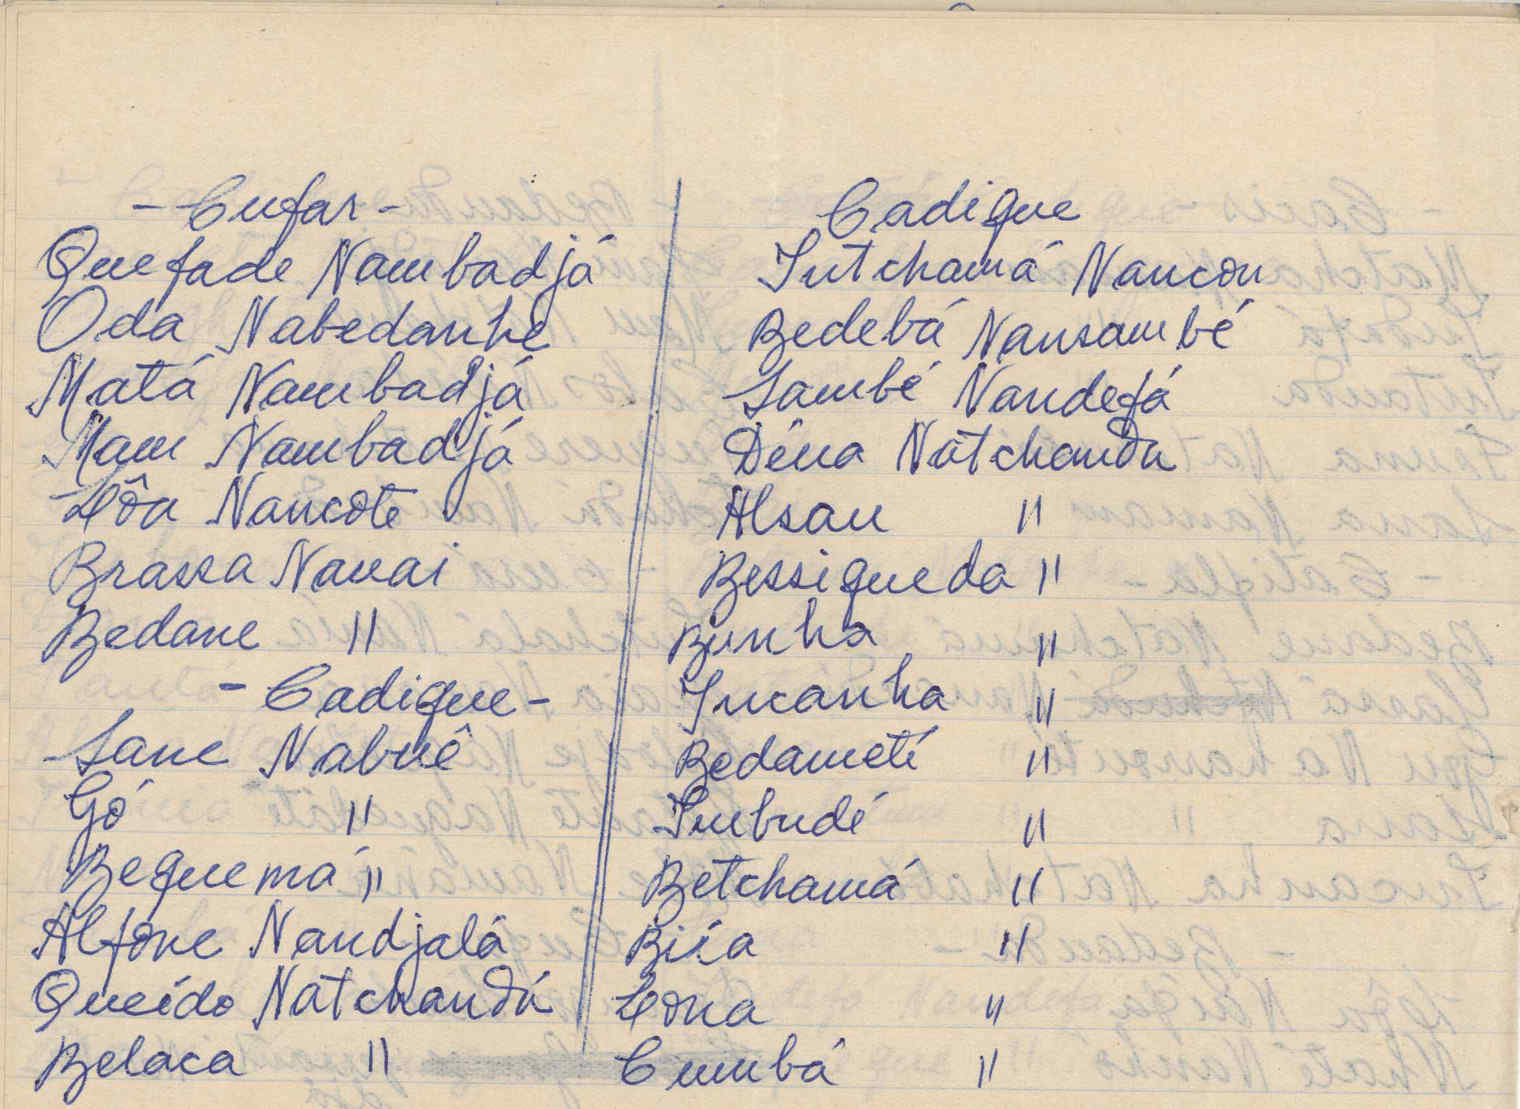 - Cufar -
Quefade Nambadjá
Oda Nabedanhe
Matá Nambadjá
Mam Nambadjá
Lôa Nancote
Brassa Nanai
Bedane "
- Cadique -
Sane Nabuê
Gó "
Bequemá "
Alfone Nandjalá
Queído Natchandá
Belaca "
Cadique
Intchamá Nancon
Bedebá Nansambé
Sambé Nandefá
Dêna Natchanda
Alsau "
Bessiqueda "
Bunha "
Incanha "
Bedametí "
Imbudé "
Betchamá "
Bísa "
Lona "
Cumbá "